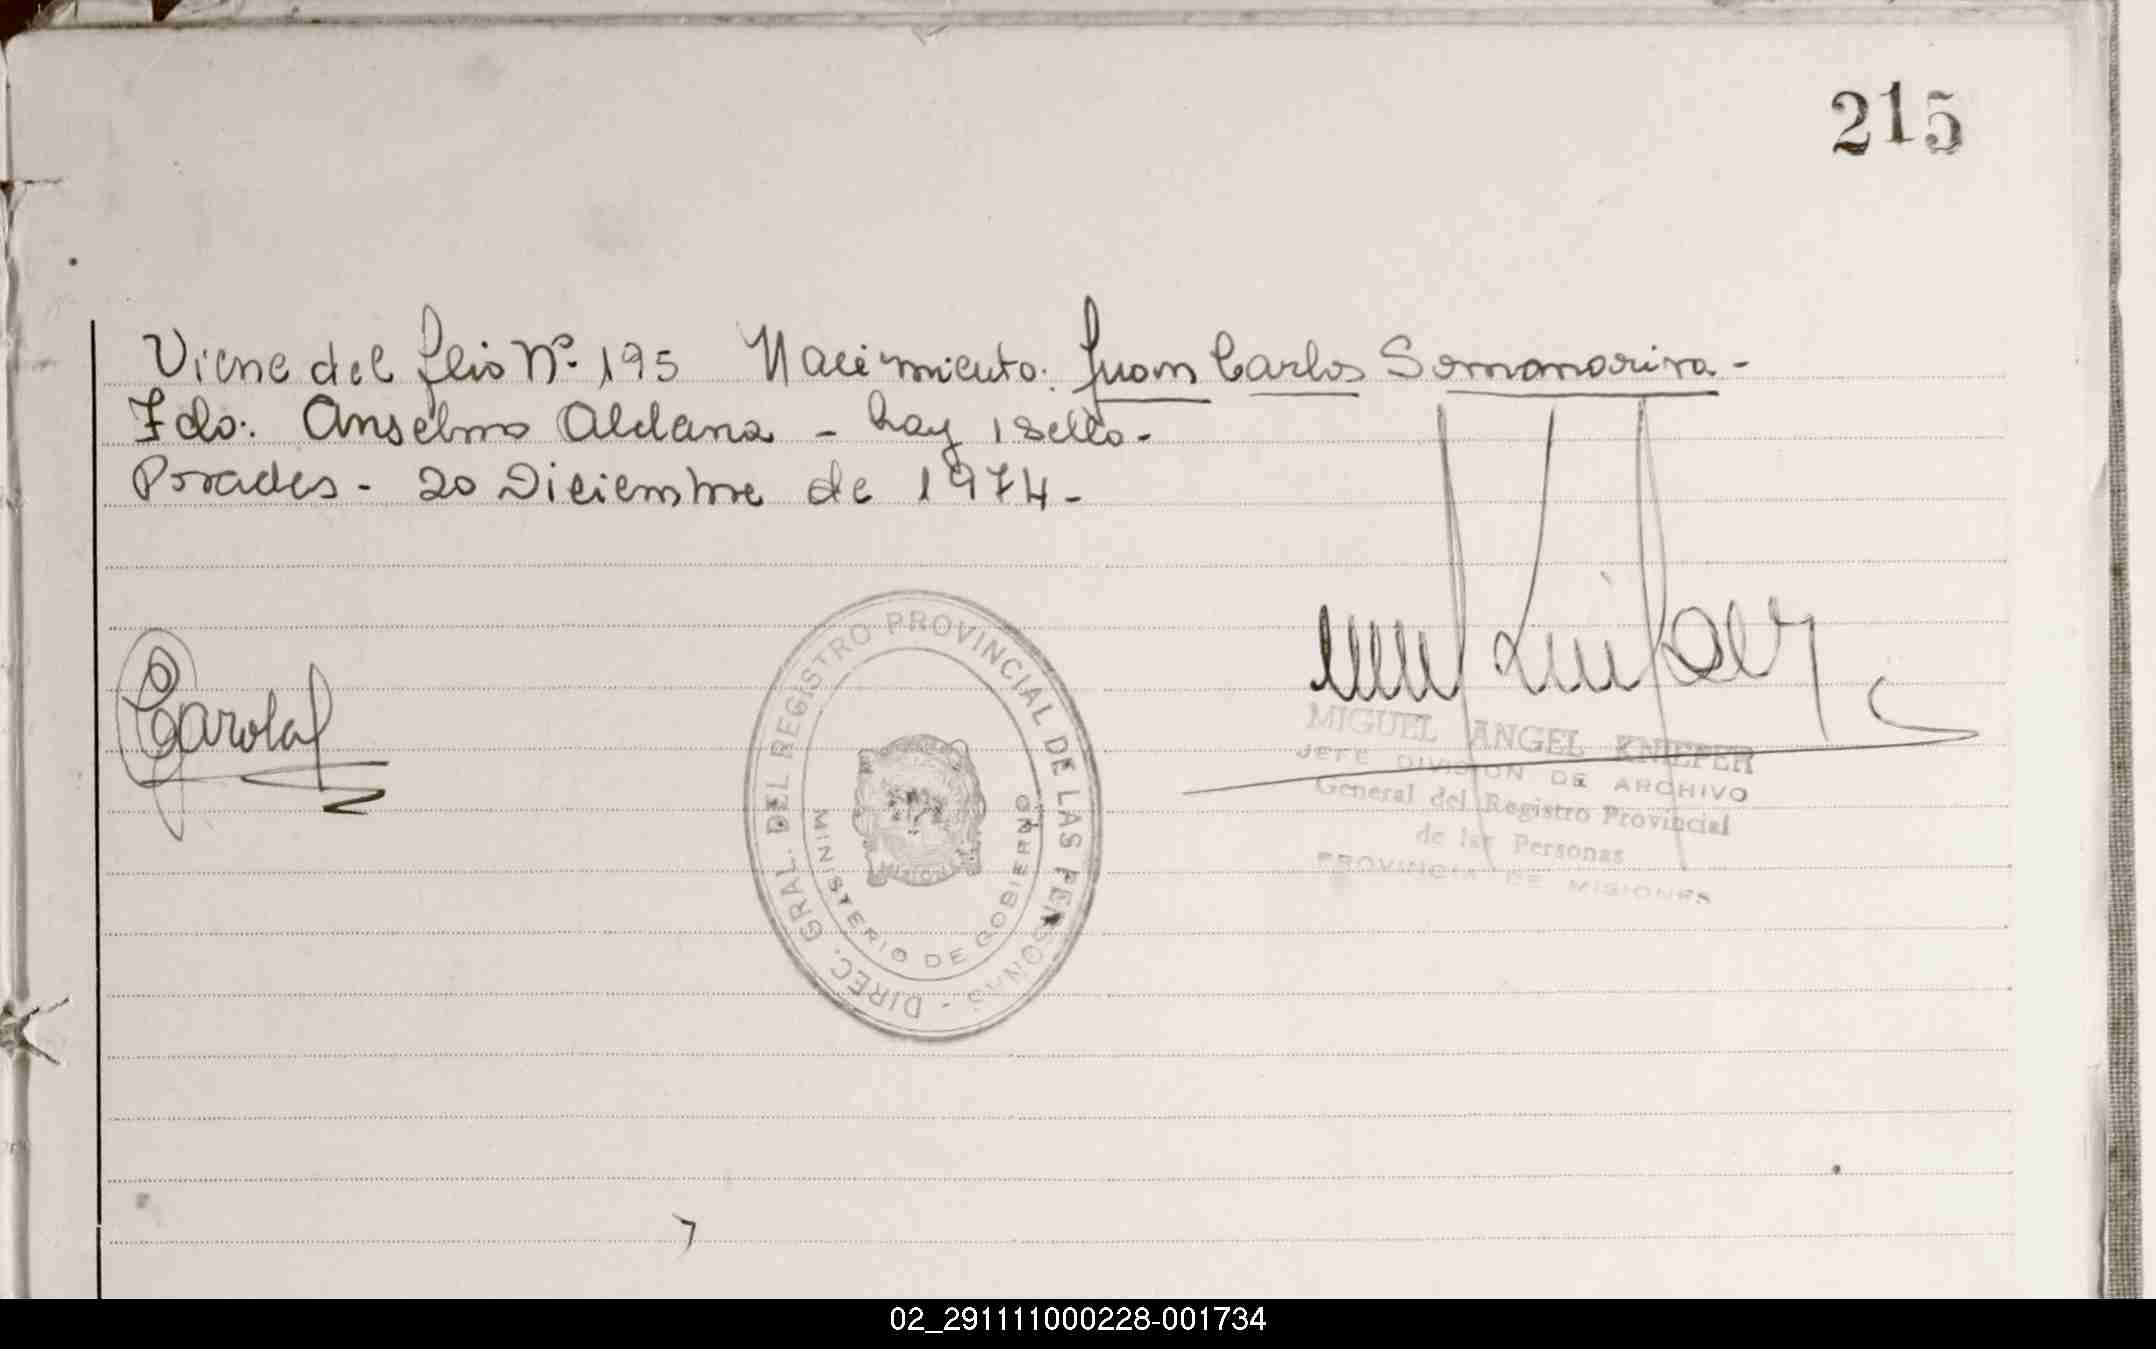 215
Viene del flio Nº 195 Nacimiento: Juan Carlos Somomoriva -
Fdo: Anselmo Aldana - hay 1 sello -
Posadas - 20 Diciembre de 1974 -
DIREC. GRAL. DEL REGISTRO PROVINCIAL DE LAS PERSONAS -
MINISTERIO DE GOBIERNO
MIGUEL ANGEL KNIEPER
JEFE DIVISION DE ARCHIVO
General del Registro Provincial
de las Personas
PROVINCIA DE MISIONES
02_291111000228-001734